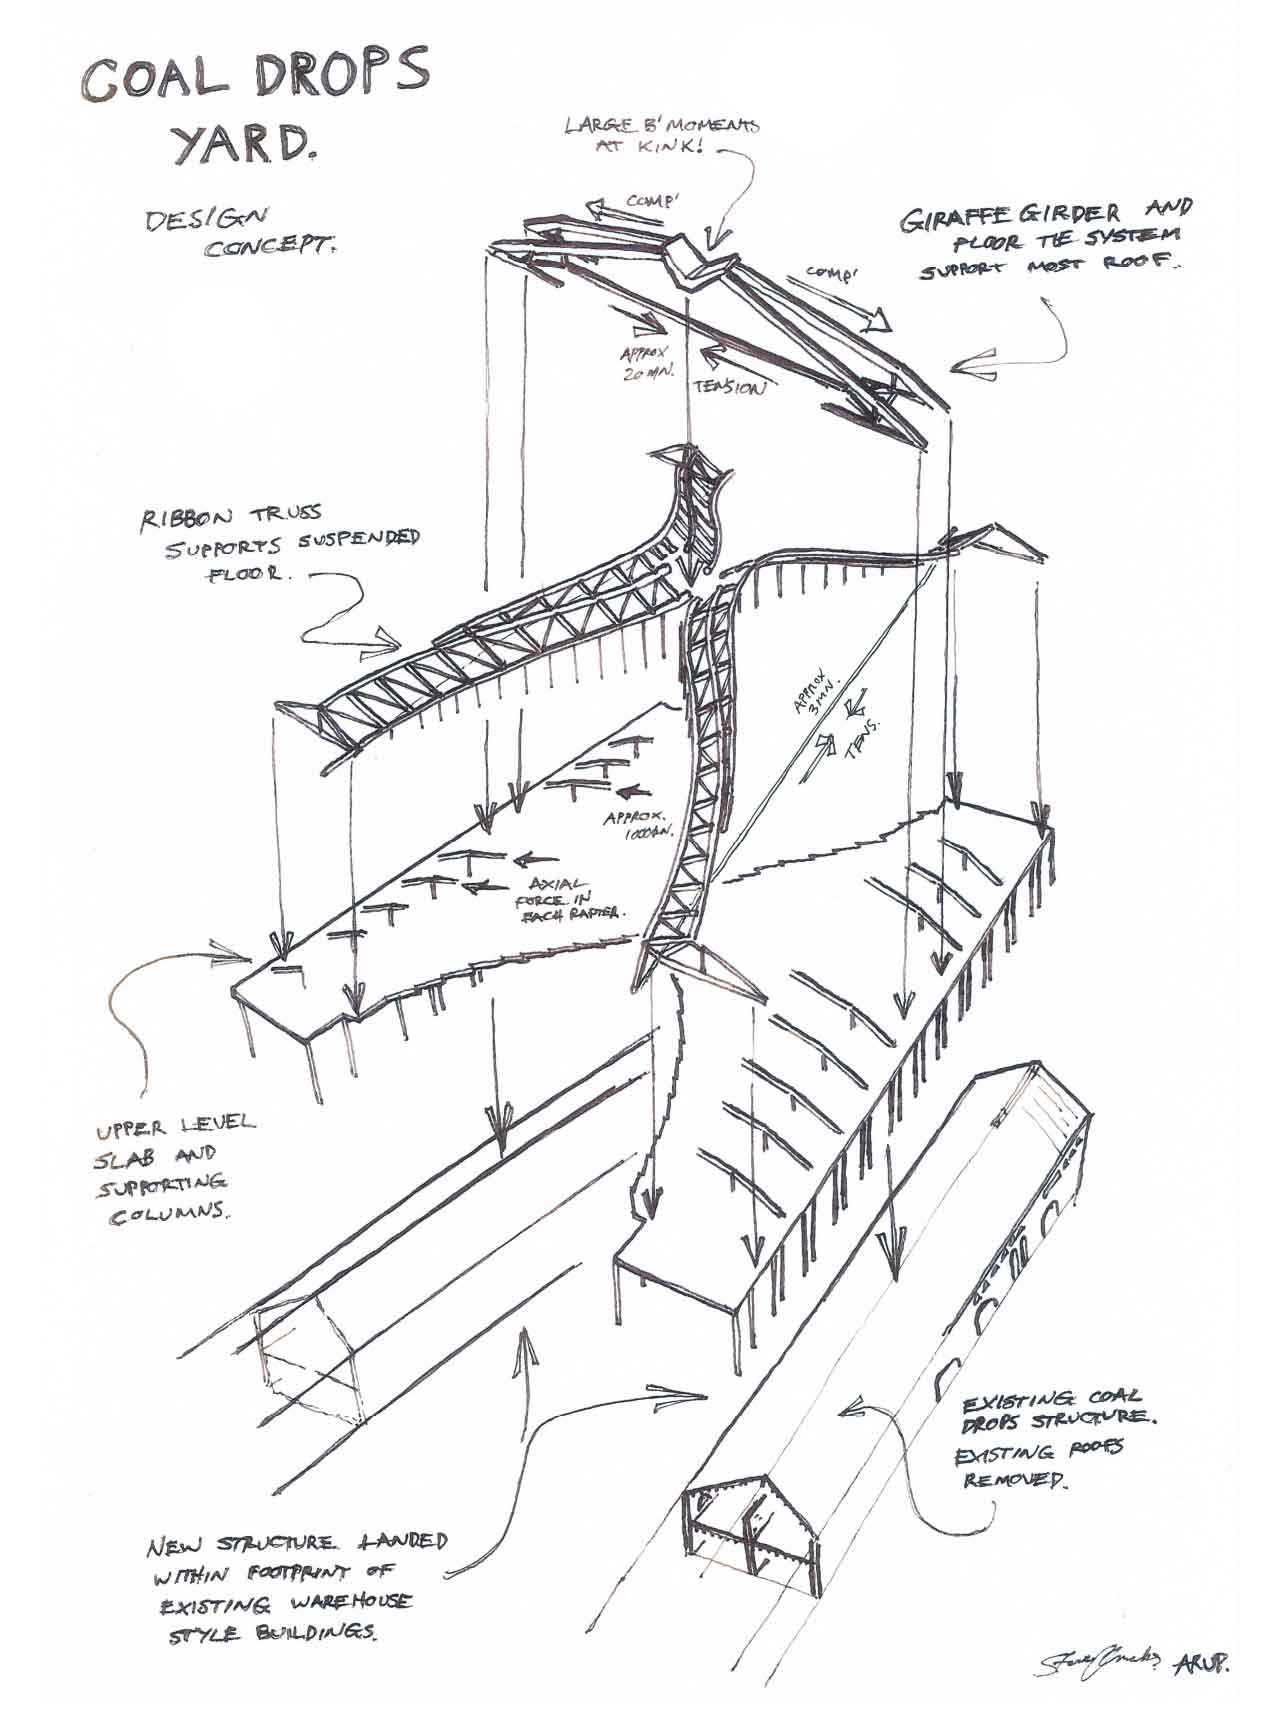 COAL DROPS
YARD.
DESIGN
CONCEPT.
LARGE B' MOMENTS
AT KINK!
COMP'
GIRAFFE GIRDER AND
FLOOR TIE SYSTEM
SUPPORT MOST ROOF.
COMP'
APPROX
20 MN.
TENSION
RIBBON TRUSS
SUPPORTS SUSPENDED
FLOOR.
APPROX
3 MN.
TENS.
APPROX.
1000 kN.
AXIAL
FORCE IN
EACH RAFTER.
UPPER LEVEL
SLAB AND
SUPPORTING
COLUMNS.
EXISTING COAL
DROPS STRUCTURE.
EXISTING ROOFS
REMOVED.
NEW STRUCTURE LANDED
WITHIN FOOTPRINT OF
EXISTING WAREHOUSE
STYLE BUILDINGS.
ARUP.